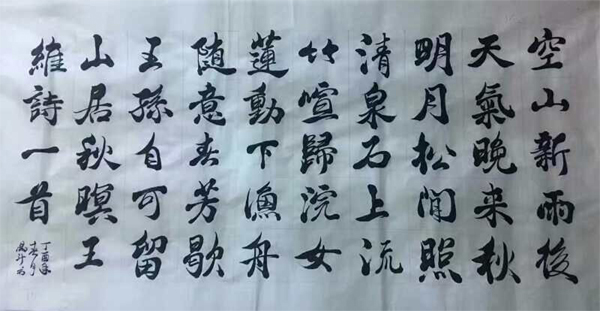 空山新雨後
天氣晚来秋
明月松間照
清泉石上流
竹喧歸浣女
蓮動下漁舟
随意春芳歇
王孫自可留
山居秋暝王
維詩一首
丁酉年
春月